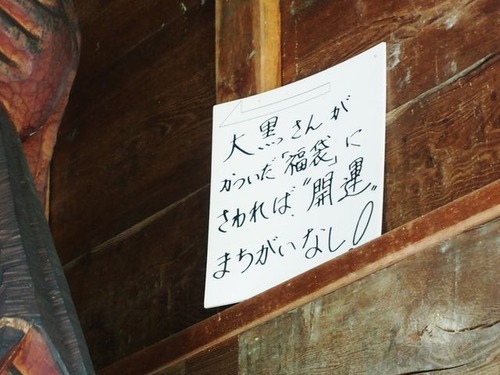 大黒さんが
かついだ「福袋」に
さわれば“開運”
まちがいなし!